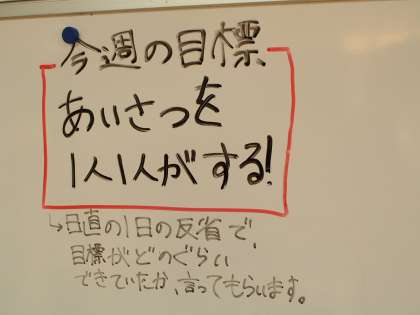 今週の目標
あいさつを
1人1人がする!
↳日直の1日の反省で、
目標がどのぐらい
できていたか、言ってもらいます。